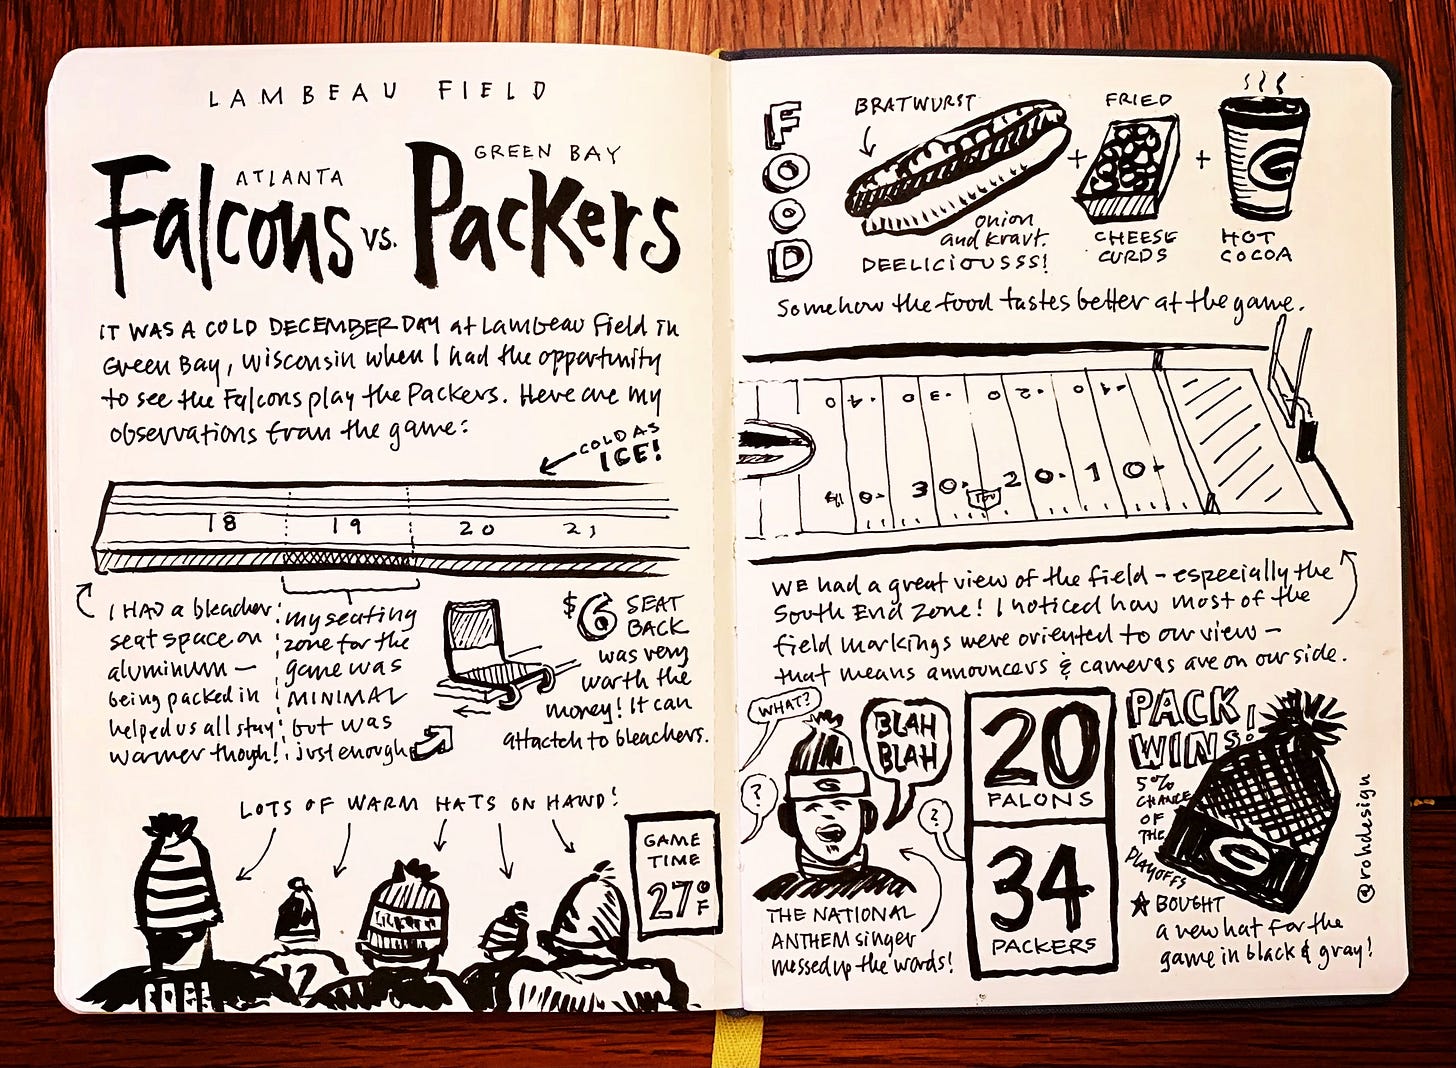 LAMBEAU FIELD
ATLANTA
Falcons vs.
GREEN BAY
Packers
IT WAS A COLD DECEMBER DAY at Lambeau Field in
Green Bay, Wisconsin when I had the opportunity
to see the Falcons play the Packers. Here are my
observations from the game:
COLD AS
ICE!
18 19 20 21
I HAD a bleacher
seat space on
aluminum —
being packed in
helped us all stay
warmer though!
my seating
zone for the
game was
MINIMAL
but was
just enough
$6 SEAT
BACK
was very
worth the
money! It can
attactch to bleachers.
LOTS OF WARM HATS ON HAND!
12
GAME
TIME
27°F
FOOD
BRATWURST
onion
and kraut.
DEELICIOUSSS!
+
FRIED
CHEESE
CURDS
+
G
HOT
COCOA
Somehow the food tastes better at the game.
40 30 20 10
40 30 20 10
WE had a great view of the field – especially the
South End Zone! I noticed how most of the
field markings were oriented to our view –
that means announcers & cameras are on our side.
WHAT?
?
G
BLAH
BLAH
?
THE NATIONAL
ANTHEM singer
messed up the words!
20
FALONS
34
PACKERS
PACK
WINS!
5%
CHANCE
OF
THE
PLAYOFFS
G
BOUGHT
a new hat for the
game in black & gray!
@rohdesign